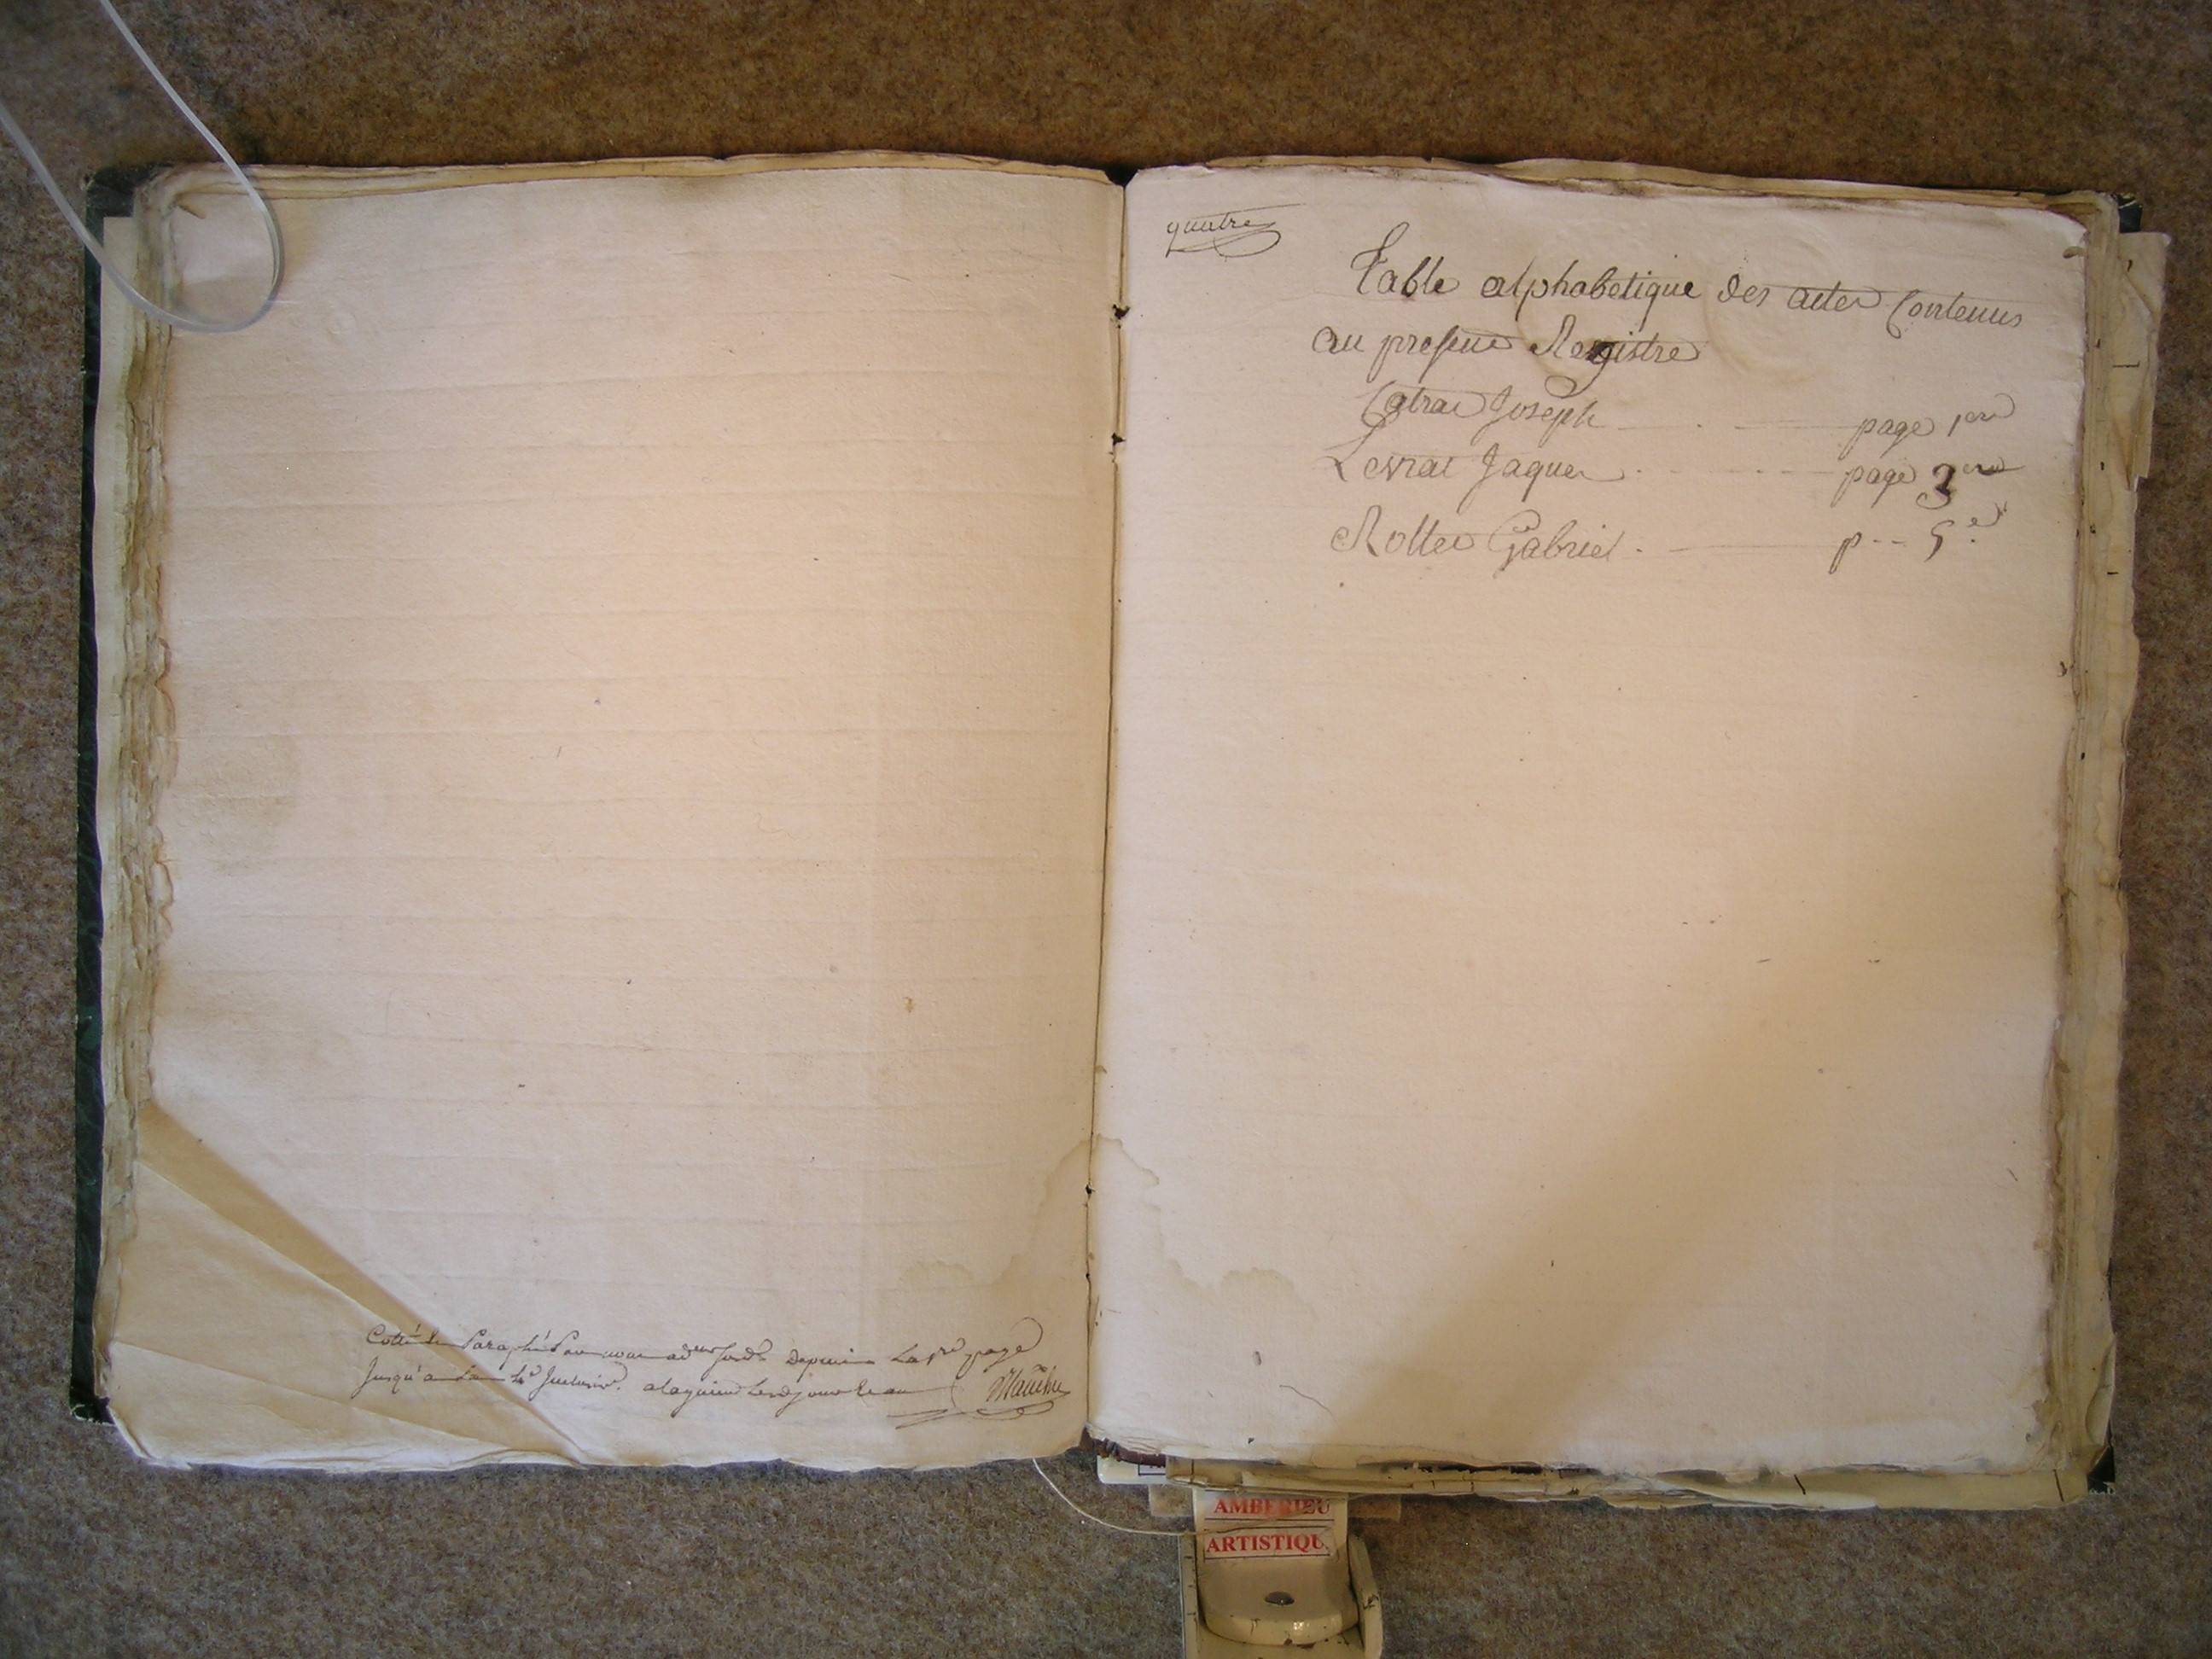 Cotté & Paraphé Par nous depuis La 1re page
Jusqu'a La 4e Inclusive.
quatre
Table alphabetique des actes Contenus
au present Registre
Joseph page 1ere
Levrat Jaques page 3eme
Rollet Gabriel p 5e
AMBERIEU
ARTISTIQU